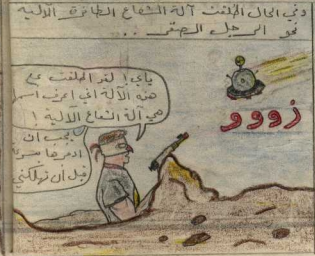 وفي الحال انطلقت آلة الشعاع الطائرة الآلية
نحو الرجل المرصّع ..
زووو
ياي! لقد انطلقت مع
هذه الآلة التي اعرف اسمها
هي آلة الشعاع الآلية !
يجب ان
ادمرها بسرعة
قبل أن تهلكني